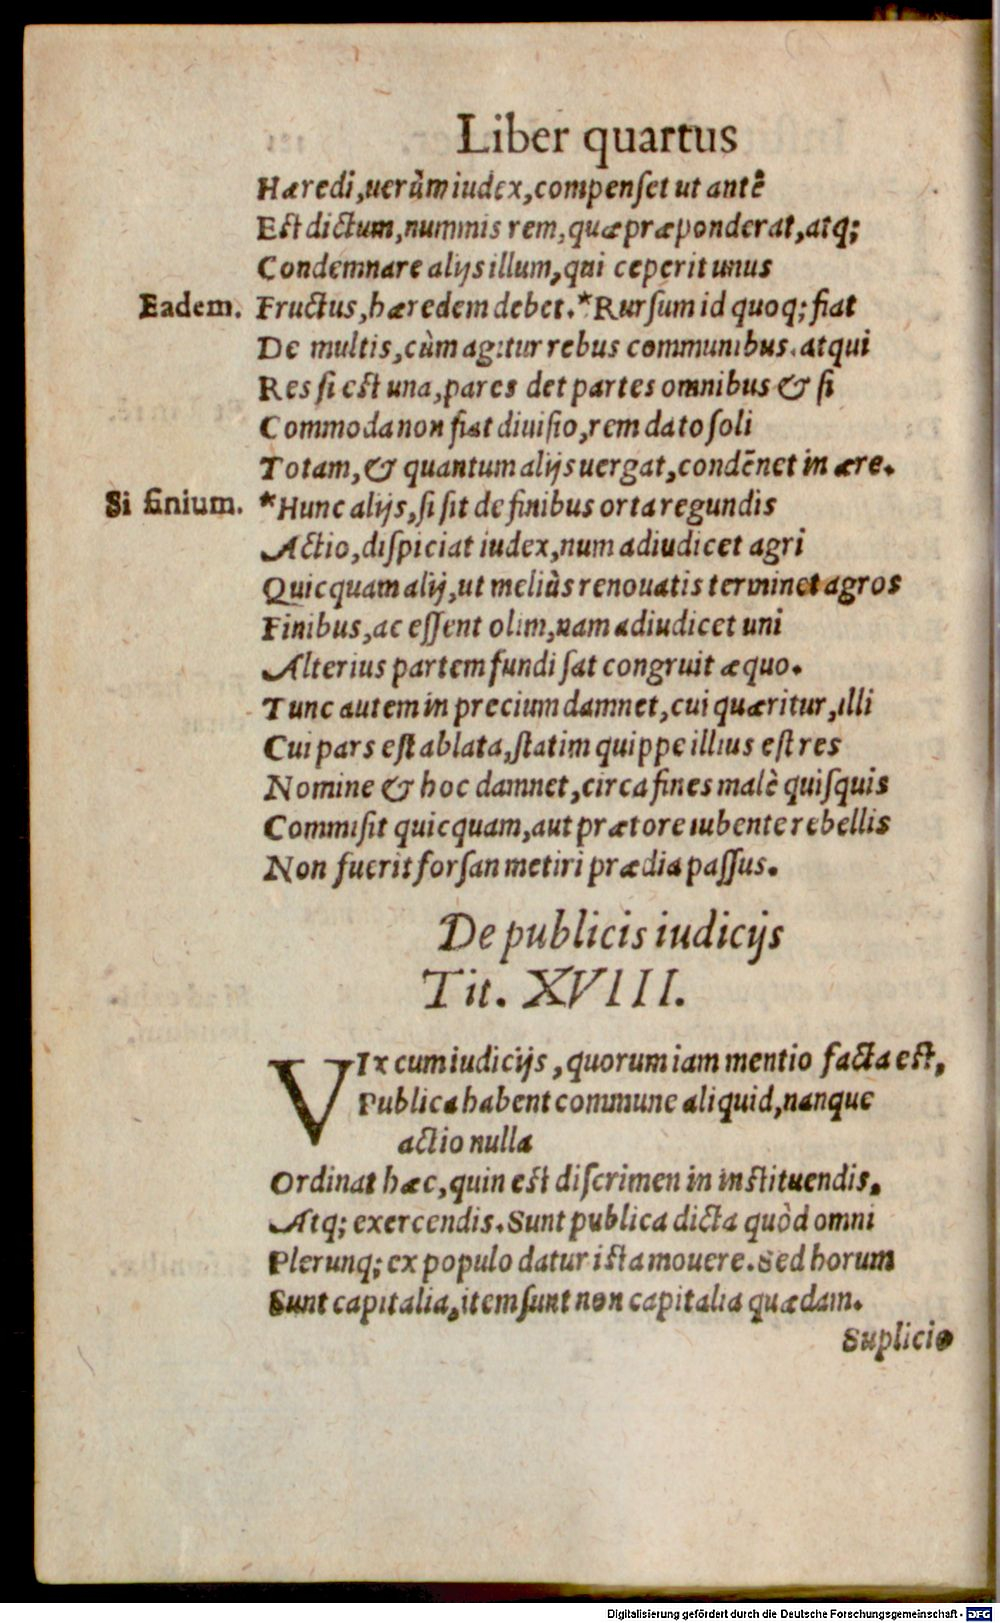 Liber quartus
Hæredi, uerùm iudex, compenset ut antê
Est dictum, nummis rem, quæ præponderat, atq;
Condemnare alijs illum, qui ceperit unus
Eadem. Fructus, hæredem debet. *Rursum id quoq; fiat
De multis, cùm agitur rebus communibus. atqui
Res si est una, pares det partes omnibus & si
Commoda non fiat diuisio, rem dato soli
Totam, & quantum alijs uergat, condẽnet in ære.
Si finium. *Hunc alijs, si sit de finibus orta regundis
Actio, dispiciat iudex, num adiudicet agri
Quicquam alij, ut meliùs renouatis terminet agros
Finibus, ac essent olim, nam adiudicet uni
Alterius partem fundi sat congruit æquo.
Tunc autem in precium damnet, cui quæritur, illi
Cui pars est ablata, statim quippe illius est res
Nomine & hoc damnet, circa fines malè quisquis
Commisit quicquam, aut prætore iubente rebellis
Non fuerit forsan metiri prædia passus.
De publicis iudicijs
Tit. XVIII.
VIx cum iudicijs, quorum iam mentio facta est,
Publica habent commune aliquid, nanque
actio nulla
Ordinat hæc, quin est discrimen in instituendis.
Atq; exercendis. Sunt publica dicta quòd omni
Plerunq; ex populo datur ista mouere. Sed horum
Sunt capitalia, item sunt non capitalia quædam.
Suplicio
Digitalisierung gefördert durch die Deutsche Forschungsgemeinschaft - DFG